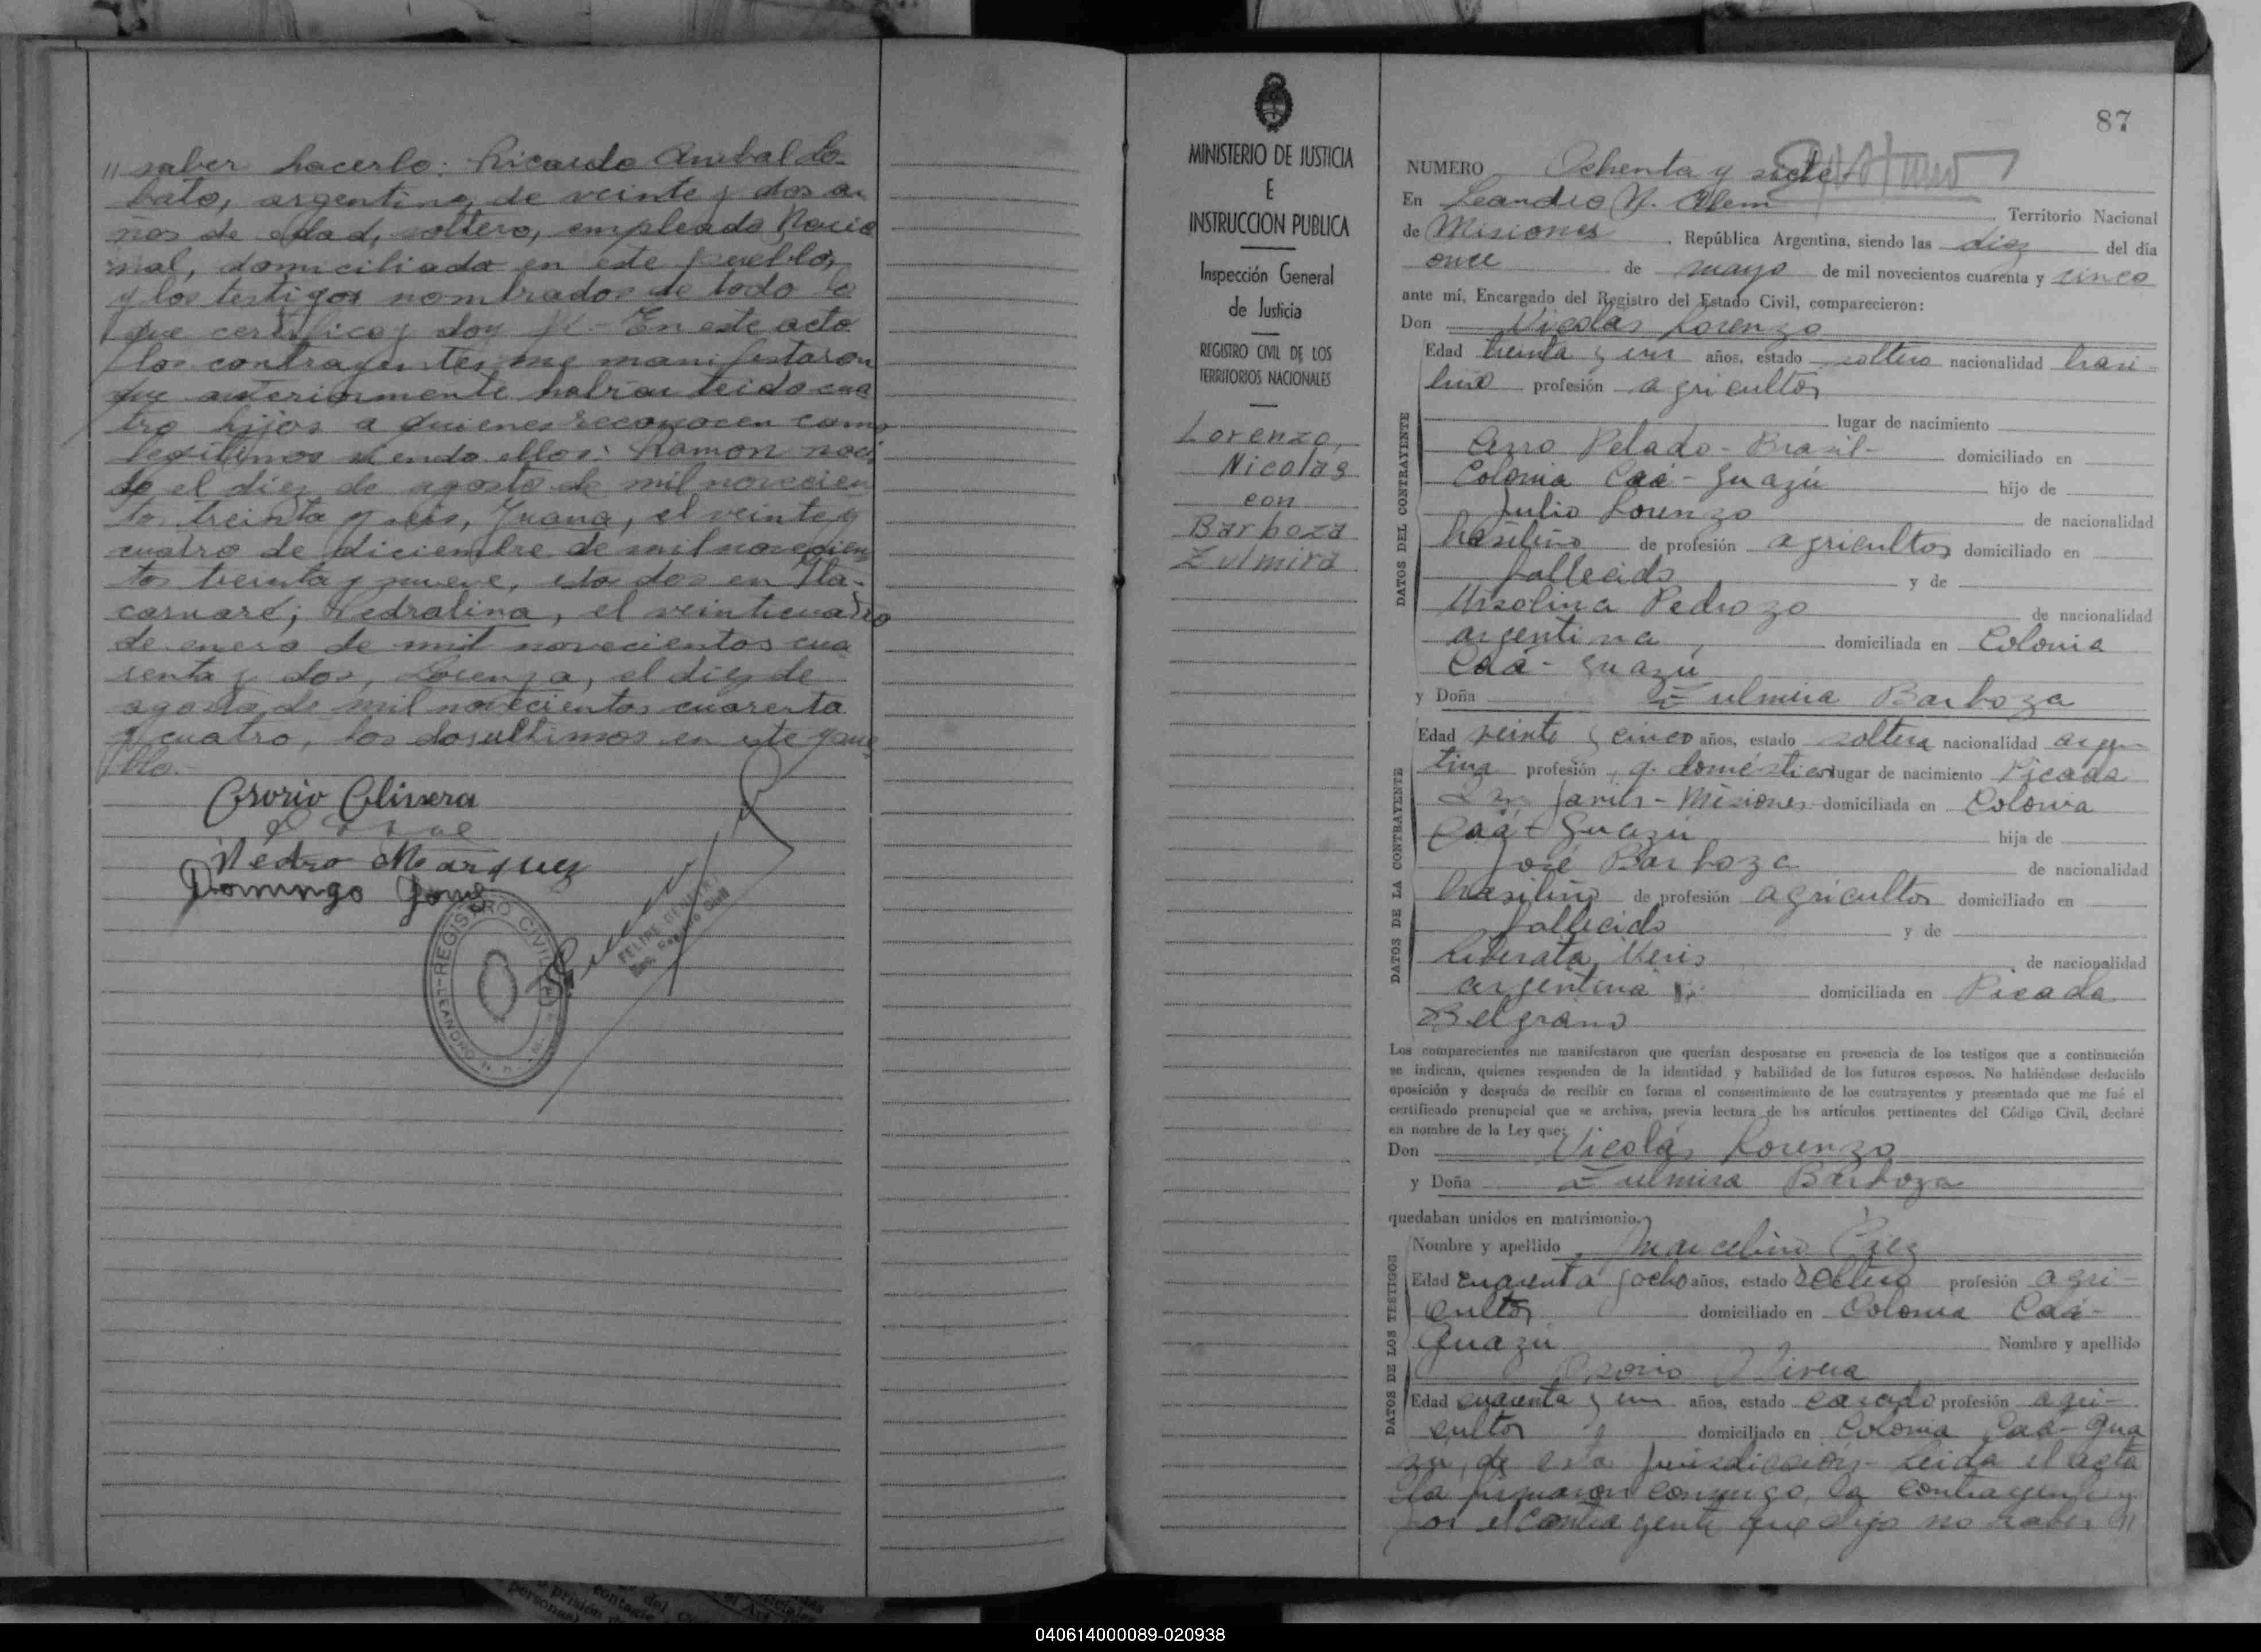 " saber hacerlo: Ricardo Anibal Lo-
bato, argentino, de veinte y dos a-
ños de edad, soltero, empleado Nacio
nal, domiciliado en este pueblo,
y los testigos nombrados de todo lo
que certifico y doy fé.- En este acto
los contrayentes me manifestaron
que anteriormente habian teido cua
tro hijos a quienes reconocen como
legitimos siendo ellos: Ramon naci
do el diez de agosto de mil novecien
tos treinta y seis, Juana, el veinte y
cuatro de diciembre de mil novecien
tos treinta y nueve, estos dos en Ita-
caruaré; Pedralina, el veinticuatro
de enero de mil novecientos cua
renta y dos, Lorenza, el diez de
agosto de mil novecientos cuarenta
y cuatro, los dos ultimos en este pue
blo.-
Osorio Olivera
Pedro Marquez
Domingo
REGISTRO CIVIL
LEANDRO N.
FELIPE
Enc. Registro Civil
MINISTERIO DE JUSTICIA
E
INSTRUCCION PUBLICA
Inspección General
de Justicia
REGISTRO CIVIL DE LOS
TERRITORIOS NACIONALES
Lorenzo,
Nicolás
con
Barboza
Zulmira
87
NUMERO Ochenta y siete
En Leandro N. Alem Territorio Nacional
de Misiones, República Argentina, siendo las diez del día
once de mayo de mil novecientos cuarenta y cinco
ante mí, Encargado del Registro del Estado Civil, comparecieron:
Don Nicolás Lorenzo
DATOS DEL CONTRAYENTE
Edad treinta y un años, estado soltero nacionalidad brasi-
leño profesión agricultor
lugar de nacimiento
Cerro Pelado - Brasil - domiciliado en
Colonia Caá-Guazú hijo de
Julio Lorenzo de nacionalidad
brasileño de profesión agricultor domiciliado en
fallecido y de
Ursolina Pedrozo de nacionalidad
argentina, domiciliada en Colonia
Caá-Guazú
y Doña Zulmira Barboza
DATOS DE LA CONTRAYENTE
Edad veinte y cinco años, estado soltera nacionalidad argen-
tina profesión q. domésticos lugar de nacimiento Picada
San Javier - Misiones domiciliada en Colonia
Caá-Guazú hija de
José Barboza de nacionalidad
brasileño de profesión agricultor domiciliado en
fallecido y de
Liberata de nacionalidad
argentina domiciliada en Picada
Belgrano
Los comparecientes me manifestaron que querían desposarse en presencia de los testigos que a continuación
se indican, quienes responden de la identidad y habilidad de los futuros esposos. No habiéndose deducido
oposición y después de recibir en forma el consentimiento de los contrayentes y presentado que me fué el
certificado prenupcial que se archiva, previa lectura de los artículos pertinentes del Código Civil, declaré
en nombre de la Ley que:
Don Nicolás Lorenzo
y Doña Zulmira Barboza
quedaban unidos en matrimonio.
DATOS DE LOS TESTIGOS
Nombre y apellido Marcelino Páez
Edad cuarenta y ocho años, estado soltero profesión agri-
cultor domiciliado en Colonia Caá-
Guazú Nombre y apellido
Osorio Olivera
Edad cuarenta y un años, estado casado profesión agri-
cultor domiciliado en Colonia Caá-Gua
zú, de esta jurisdicción - Leida el acta
la firmaron conmigo, la contrayente y
por el contrayente que dijo no saber "
040614000089-020938